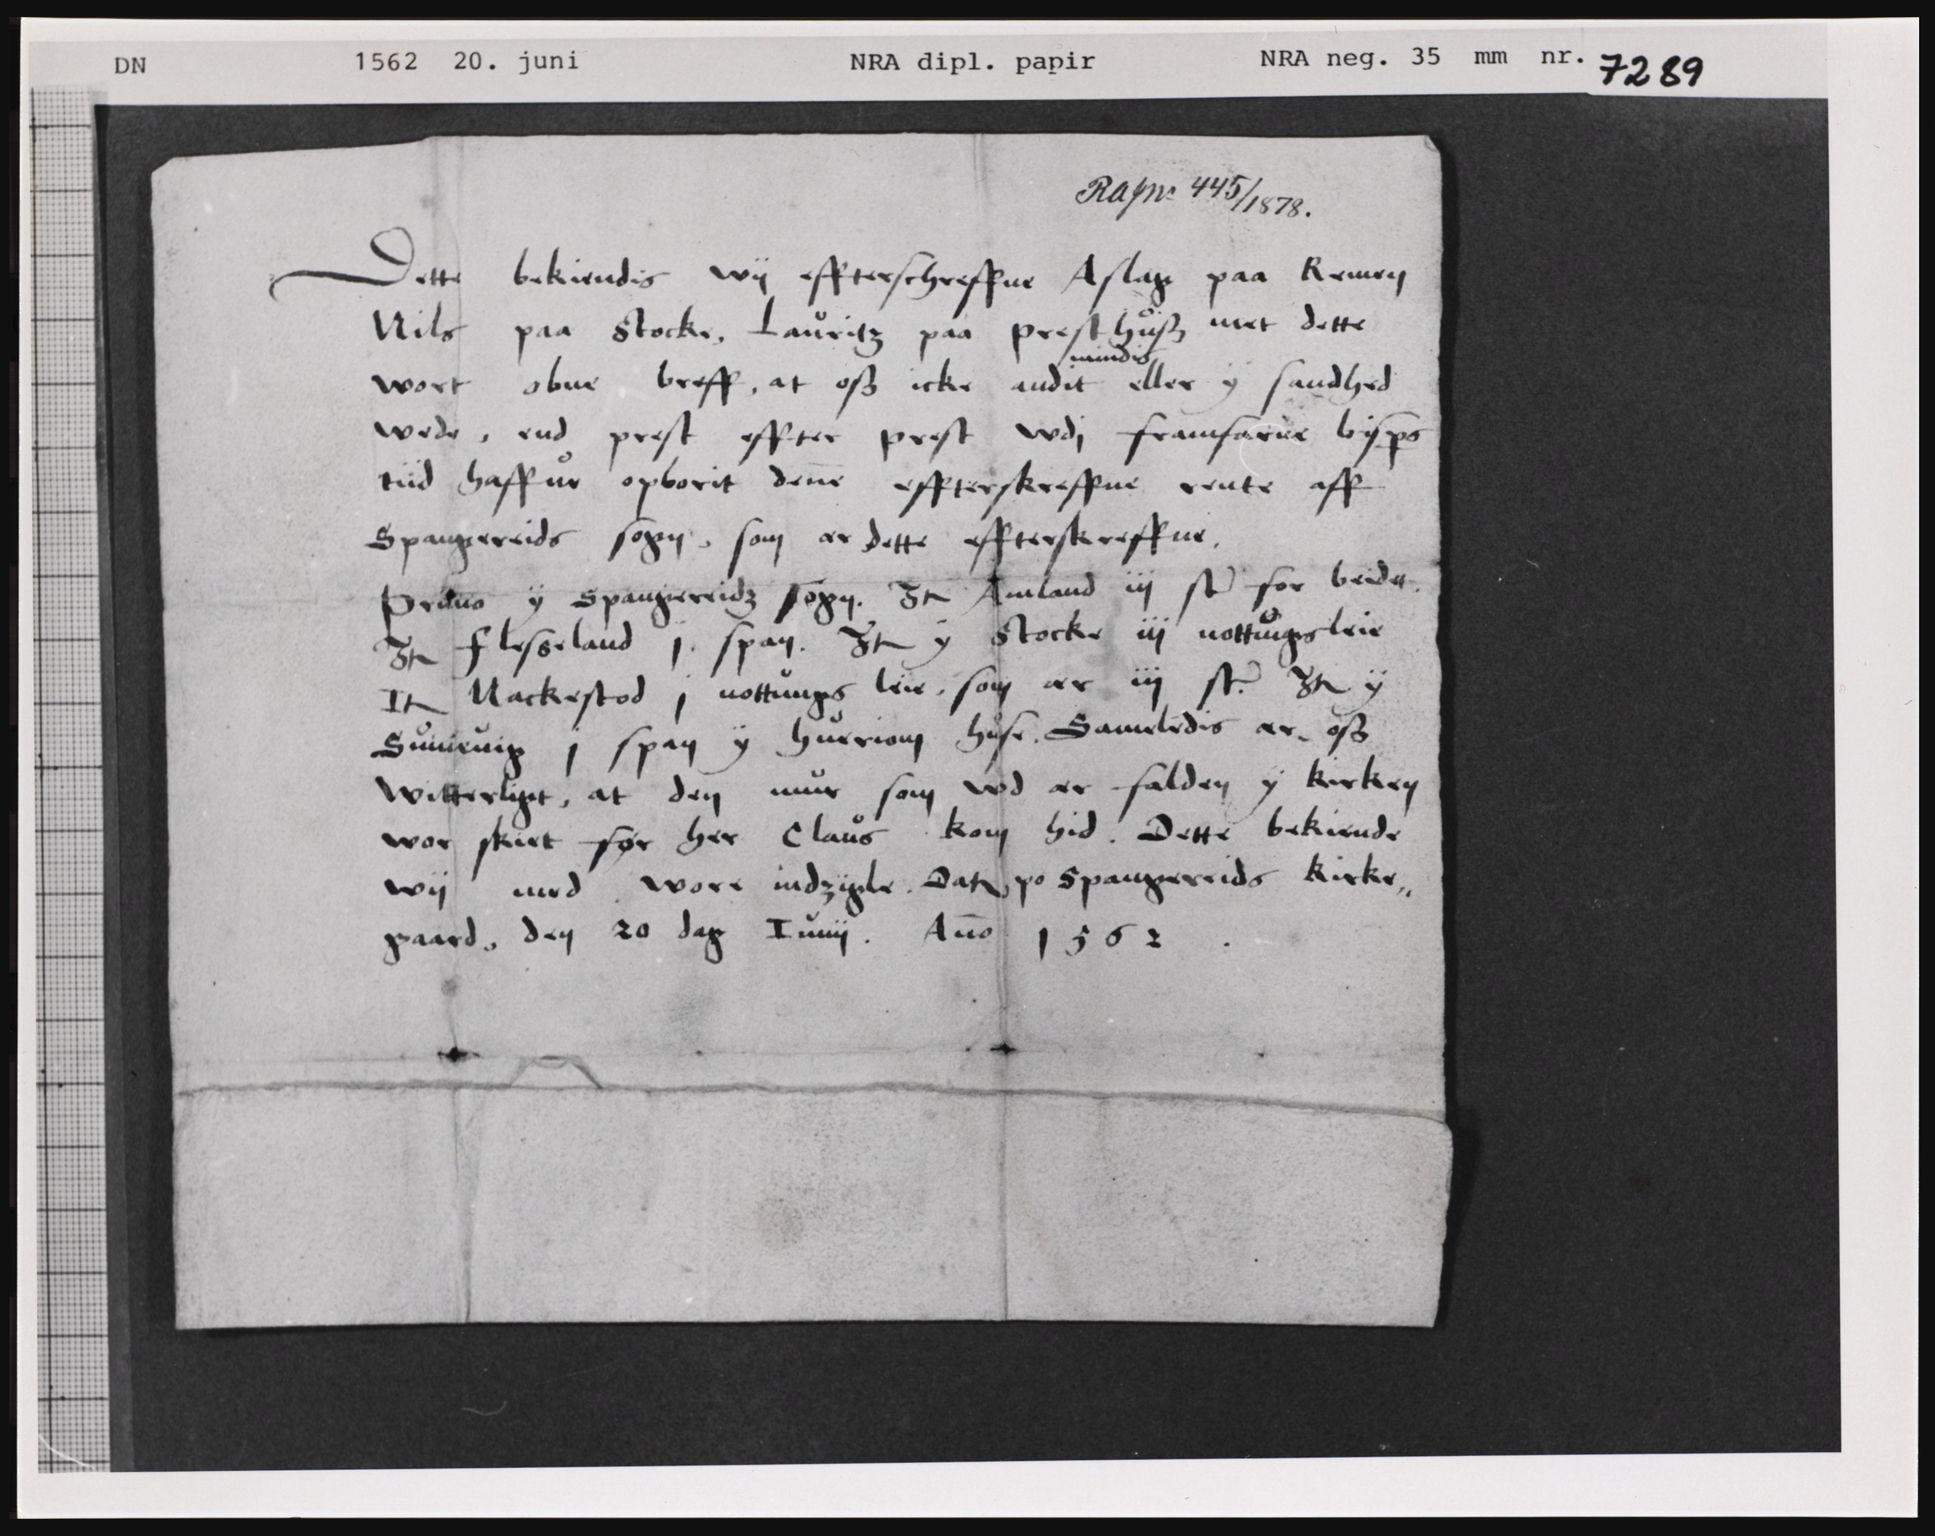 DN 1562 20. juni NRA dipl. papir NRA neg. 35 mm nr. 7289
445/1878.
Dette bekiendis wij effterschreffne Aslag paa Remen
Nils paa Stocke, Lauritz paa presthuß met dette
mindis
wort obne breff, at oß icke andit eller ÿ sandhed
wede, end prest effter prest wdj framfarne bÿsps
tiid haffur opborit denne effterskreffne rente aff
Spangereids sogn, som er dette effterskreffne.
Primo ÿ Spangereidz sogn. It Amland iij st for beide.
It flesseland j span. It ÿ Stocke iij nottungsleie
It Nackestod j nottungs leie, som er iij st. It ÿ
j span ÿ hueriom huse. Sameledis er oß
witterligt, at den mur som wd er falden ÿ kirken
wor skiet før her Claus kom hid. Dette bekiende
wij med wore indzigle. Dat po Spangereids kirke„
gaard, den 20 dag Iunij. Anno 1562.